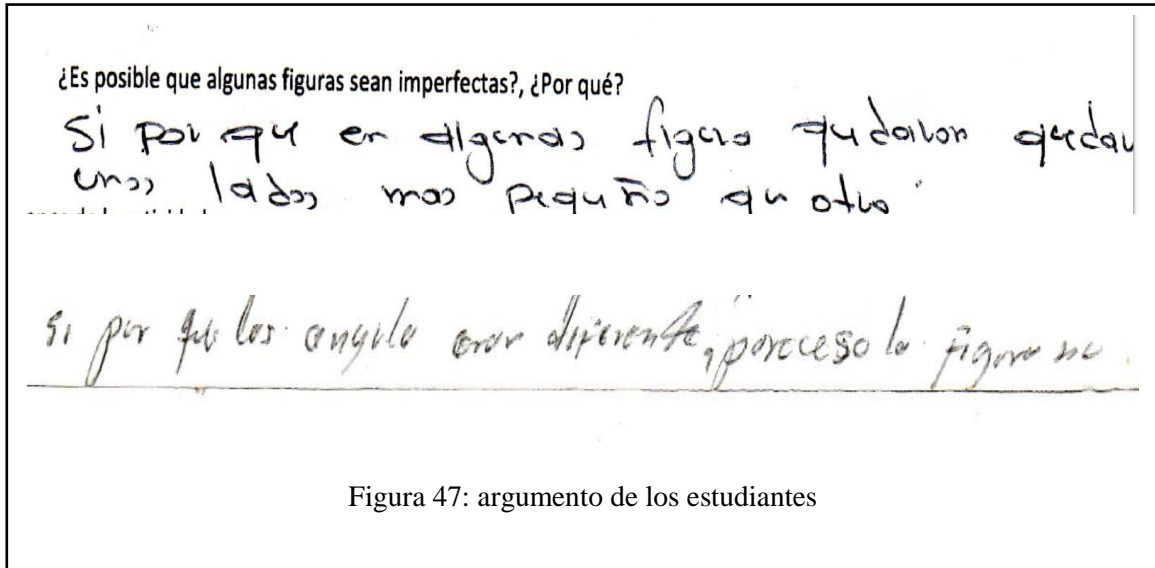 ¿Es posible que algunas figuras sean imperfectas?, ¿Por qué?
Si por que en algunas figura qudaron quedau
unos lados mas pequeño qu otro
si por que los angulo eran diferente, por eso la figura no
Figura 47: argumento de los estudiantes